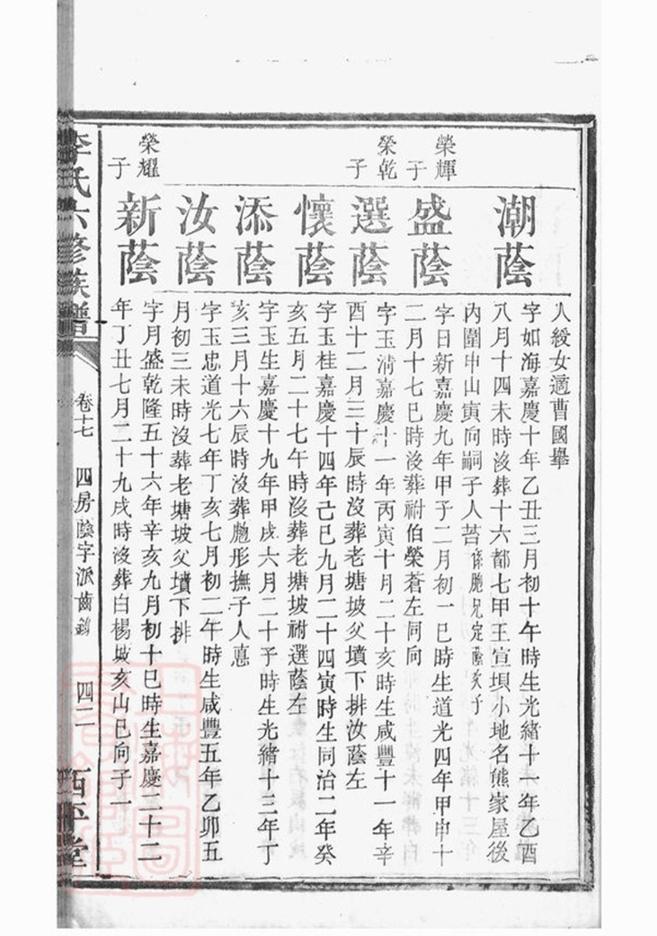 人綬女適曹國舉
潮蔭
字如海嘉慶十年乙丑三月初十午時生光緒十一年乙酉
八月十四未時沒葬十六都七甲王宣垻小地名熊家屋後
內圍申山寅向嗣子人苔係胞兄定蔭次子
榮輝子
盛蔭
字日新嘉慶九年甲子二月初一巳時生道光四年甲申十
二月十七巳時沒葬祔伯榮蒼左同向
榮乾子
選蔭
字玉清嘉慶十一年丙寅十月二十亥時生咸豐十一年辛
酉十二月三十辰時沒葬老塘坡父墳下排汝蔭左
懷蔭
字玉桂嘉慶十四年己巳九月二十四寅時生同治二年癸
亥五月二十七午時沒葬老塘坡祔選蔭左
添蔭
字玉生嘉慶十九年甲戌六月二十子時生光緒十三年丁
亥三月十六辰時沒葬彪形撫子人憙
汝蔭
字玉忠道光七年丁亥七月初二午時生咸豐五年乙卯五
月初三未時沒葬老塘坡父墳下排
榮耀子
新蔭
字月盛乾隆五十六年辛亥九月初十巳時生嘉慶二十二
年丁丑七月二十九戌時沒葬白楊坡亥山巳向子一
李氏六修族譜
卷十七 四房蔭字派齒錄 四二
西平堂